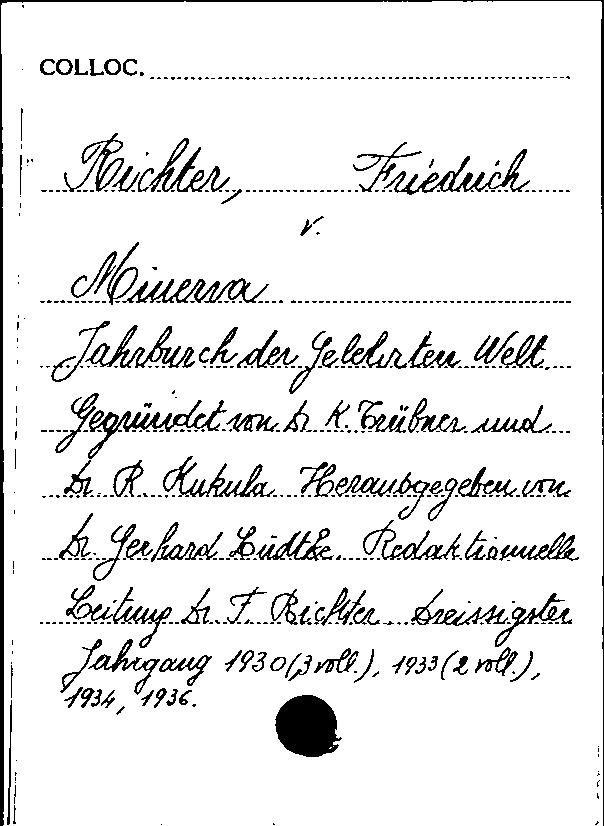 COLLOC.
Richter, Friedrich
v.
Minerva
Jahrburch der Gelehrten Welt.
Gegründet von Dr K. Trübner und
Dr R. Kukula Herausgegeben von
Dr Gerhard Lüdtke. Redaktionnelle
Leitung Dr. F. Richter. Dreissigster
Jahrgang 1930 (3 voll.), 1933 (2 voll.),
1934, 1936.